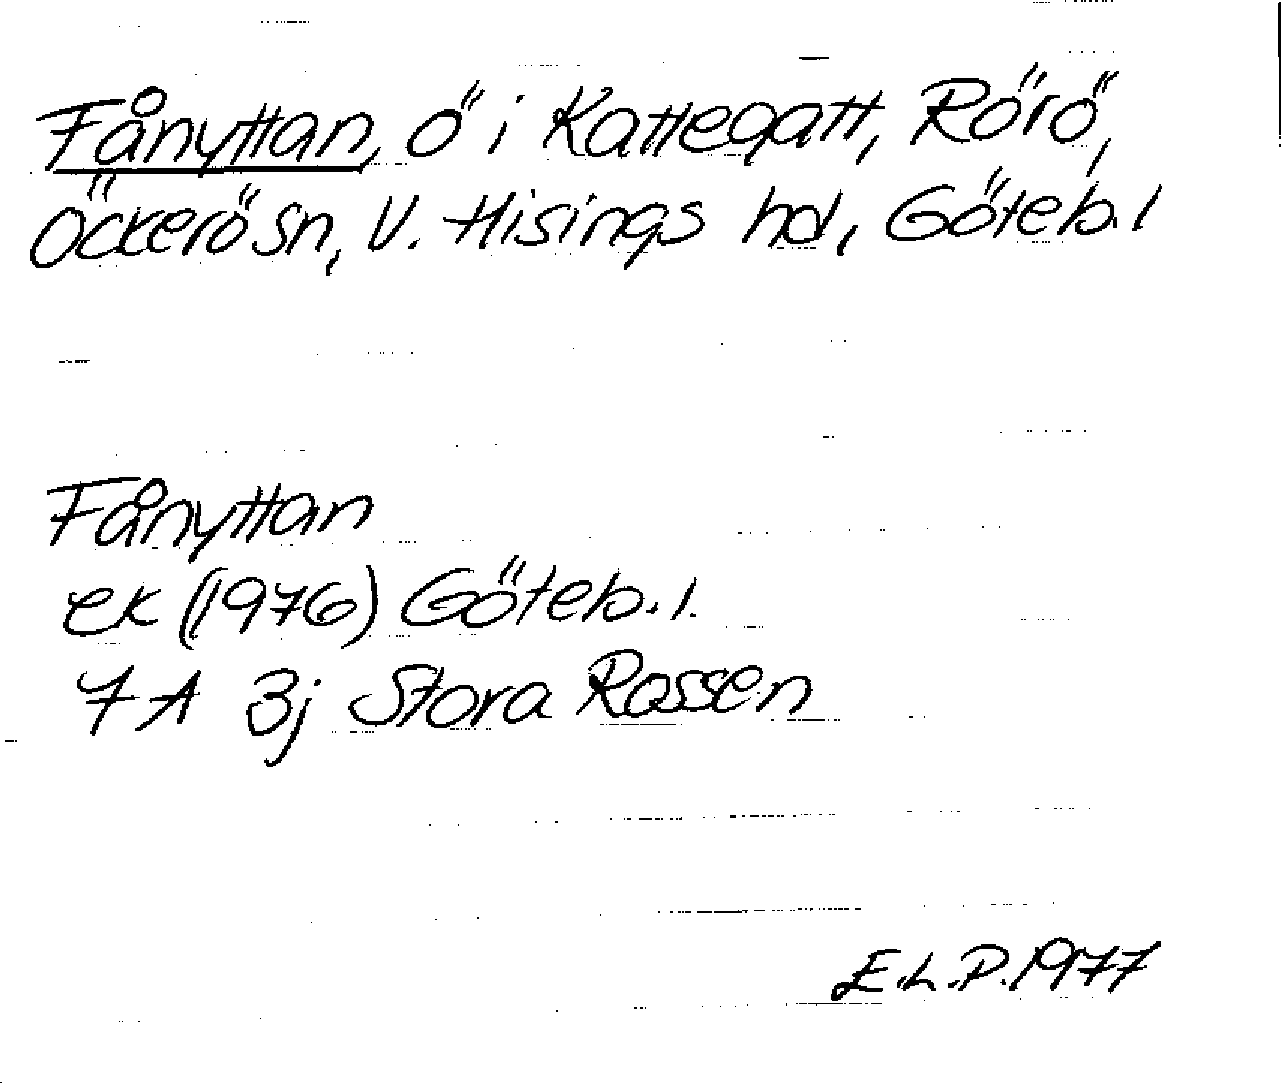 Fånyttan, ö i Kattegatt, Rörö,
Öckerö sn, V. Hisings hd, Göteb. l
Fånyttan
ek (1976) Göteb. l.
7 A 3j Stora Rossen
E.L.P. 1977